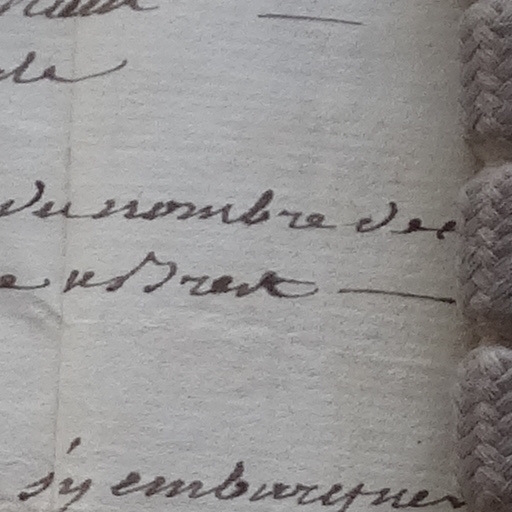 de
du nombre des
Brest
s'y embarquer